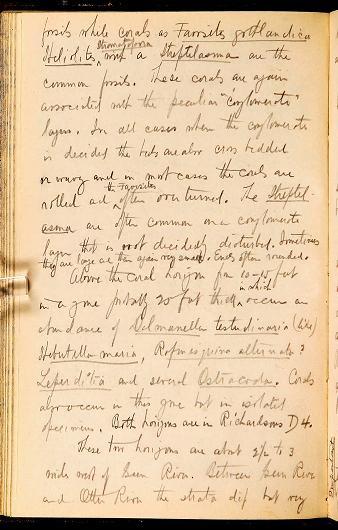 fossils while corals as Favosites gothlandica
Stromatopora
Heliolites, and a Streptelasma are the
common fossils. These corals are again
associated with the peculiar "conglomerate"
layers. In all cases where the conglomerate
is decided the beds are also cross bedded
or wavy and in most cases the corals are
the Favosites
rolled and often overturned. The Streptel-
asma are often common on a conglomerate
layer that is not decidedly disturbed. Sometimes
they are large at then again very small. Ends often rounded.
Above the coral horizon for 10-15 feet
in which
in a zone probably 20 feet thick occur an
abundance of Dalmanella testudinaria (like)
Hebertella maria, Rafinesquina alternata?
Leperditia and several Ostracoda. Corals
also occur in this zone but in isolated
specimens. Both horizons are in Richardsons D 4.
These two horizons are about 2½ to 3
miles west of Gun River. Between Gun River
and Otter River the strata dip but very